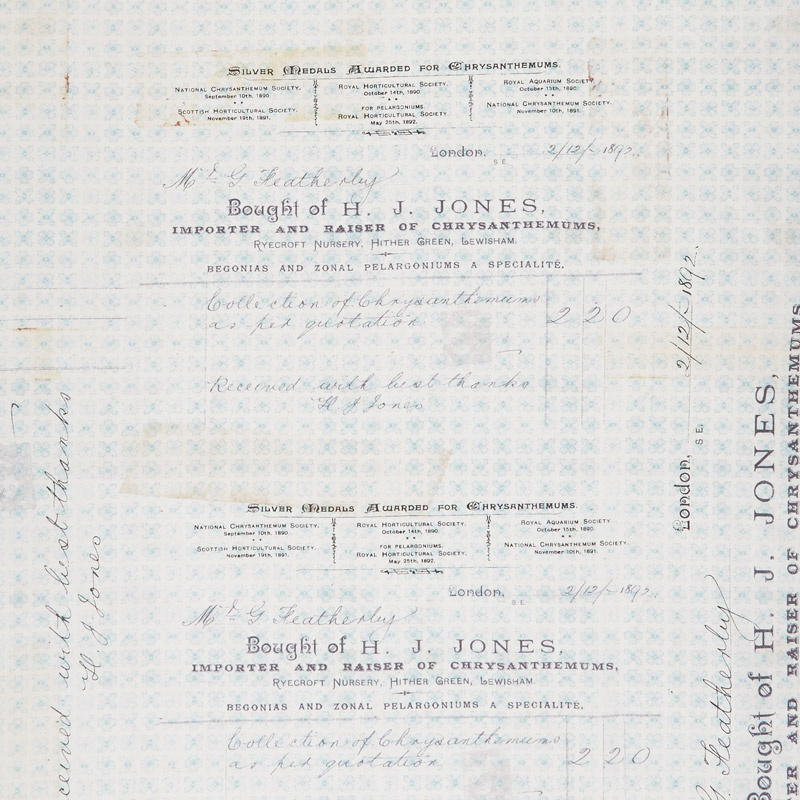 Silver Medals Awarded for Chrysanthemums.
National Chrysanthemum Society.
September 10th, 1890.
Scottish Horticultural Society.
November 19th, 1891.
Royal Horticultural Society.
October 14th, 1890
FOR PELARGONIUMS.
Royal Horticultural Society.
May 25th, 1892.
Royal Aquarium Society.
October 15th, 1890.
National Chrysanthemum Society.
November 10th, 1891.
London, S.E. 2/12/-1892.
Mr. G Featherley
Bought of H. J. JONES,
IMPORTER AND RAISER OF CHRYSANTHEMUMS,
Ryecroft Nursery, Hither Green, Lewisham.
BEGONIAS AND ZONAL PELARGONIUMS A SPECIALITÉ.
Collection of Chrysanthemums
as per quotation 2 2 0
Received with best thanks
H J Jones
Silver Medals Awarded for Chrysanthemums.
National Chrysanthemum Society.
September 10th, 1890.
Scottish Horticultural Society.
November 19th, 1891.
Royal Horticultural Society.
October 14th, 1890.
FOR PELARGONIUMS.
Royal Horticultural Society.
May 25th, 1892.
Royal Aquarium Society
October 15th, 1890.
National Chrysanthemum Society.
November 10th, 1891.
London, S.E. 2/12/-1892.
Mr. G Featherley
Bought of H. J. JONES,
IMPORTER AND RAISER OF CHRYSANTHEMUMS,
Ryecroft Nursery, Hither Green, Lewisham.
BEGONIAS AND ZONAL PELARGONIUMS A SPECIALITÉ.
Collection of Chrysanthemums
as per quotation 2 2 0
ceived with best thanks
H J Jones
London, S.E. 2/12/-1892.
G Featherley
Bought of H. J. JONES,
ER AND RAISER OF CHRYSANTHEMUMS